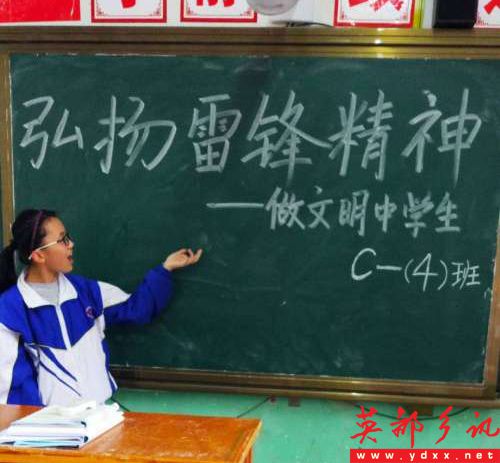 弘扬雷锋精神
——做文明中学生
C一(4)班
英都乡讯
www.ydxx.net